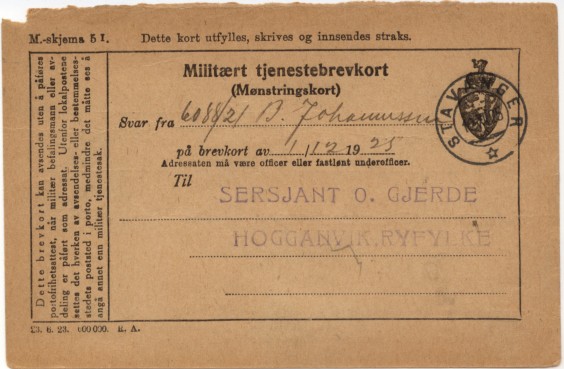 M.-skjema 51.
Dette kort utfylles, skrives og innsendes straks.
Dette brevkort kan avsendes uten å påføres
portofrihetsattest, når militær befalingsmann eller av-
deling er påført som adressat. Utenfor lokalpostene
settes det hverken av avsendelses- eller bestemmelses-
stedets poststed i porto, medmindre det måtte ses å
angå annet enn militær tjenestesak.
Militært tjenestebrevkort
(Mønstringskort)
Svar fra 6088/21 B. Johannessen
på brevkort av 1/12 1925
Adressaten må være officer eller fastlønt underofficer.
Til
SERSJANT O. GJERDE
HOGGANVIK, RYFYLKE
STAVANGER
23. 6. 23. 600 000. E. A.